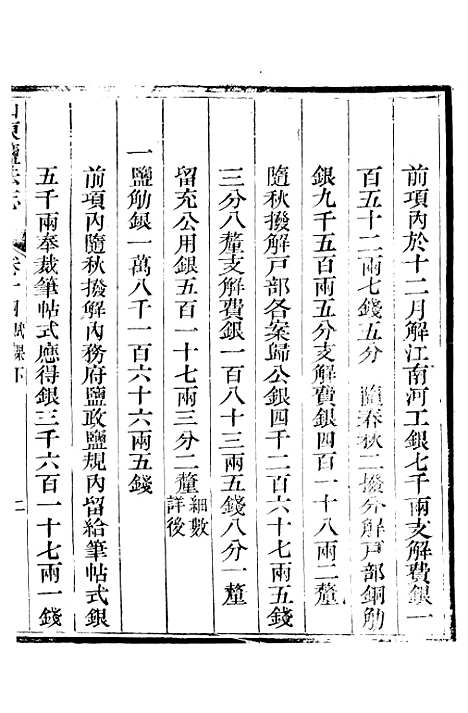 前項內於十二月解江南河工銀七千兩支解費銀一
百五十二兩七錢五分　隨春秋二撥外解戶部銅觔
銀九千五百兩五分支解費銀四百一十八兩二釐
隨秋撥解戶部各案歸公銀四千二百六十七兩五錢
三分八釐支解費銀一百八十三兩五錢八分一釐
留充公用銀五百一十七兩三分二釐細數詳後
一鹽觔銀一萬八千一百六十六兩五錢
前項內隨秋撥解內務府鹽政鹽規內留給筆帖式銀
五千兩奉裁筆帖式應得銀三千六百一十七兩一錢
山東鹽法志　卷十四賦課下　二